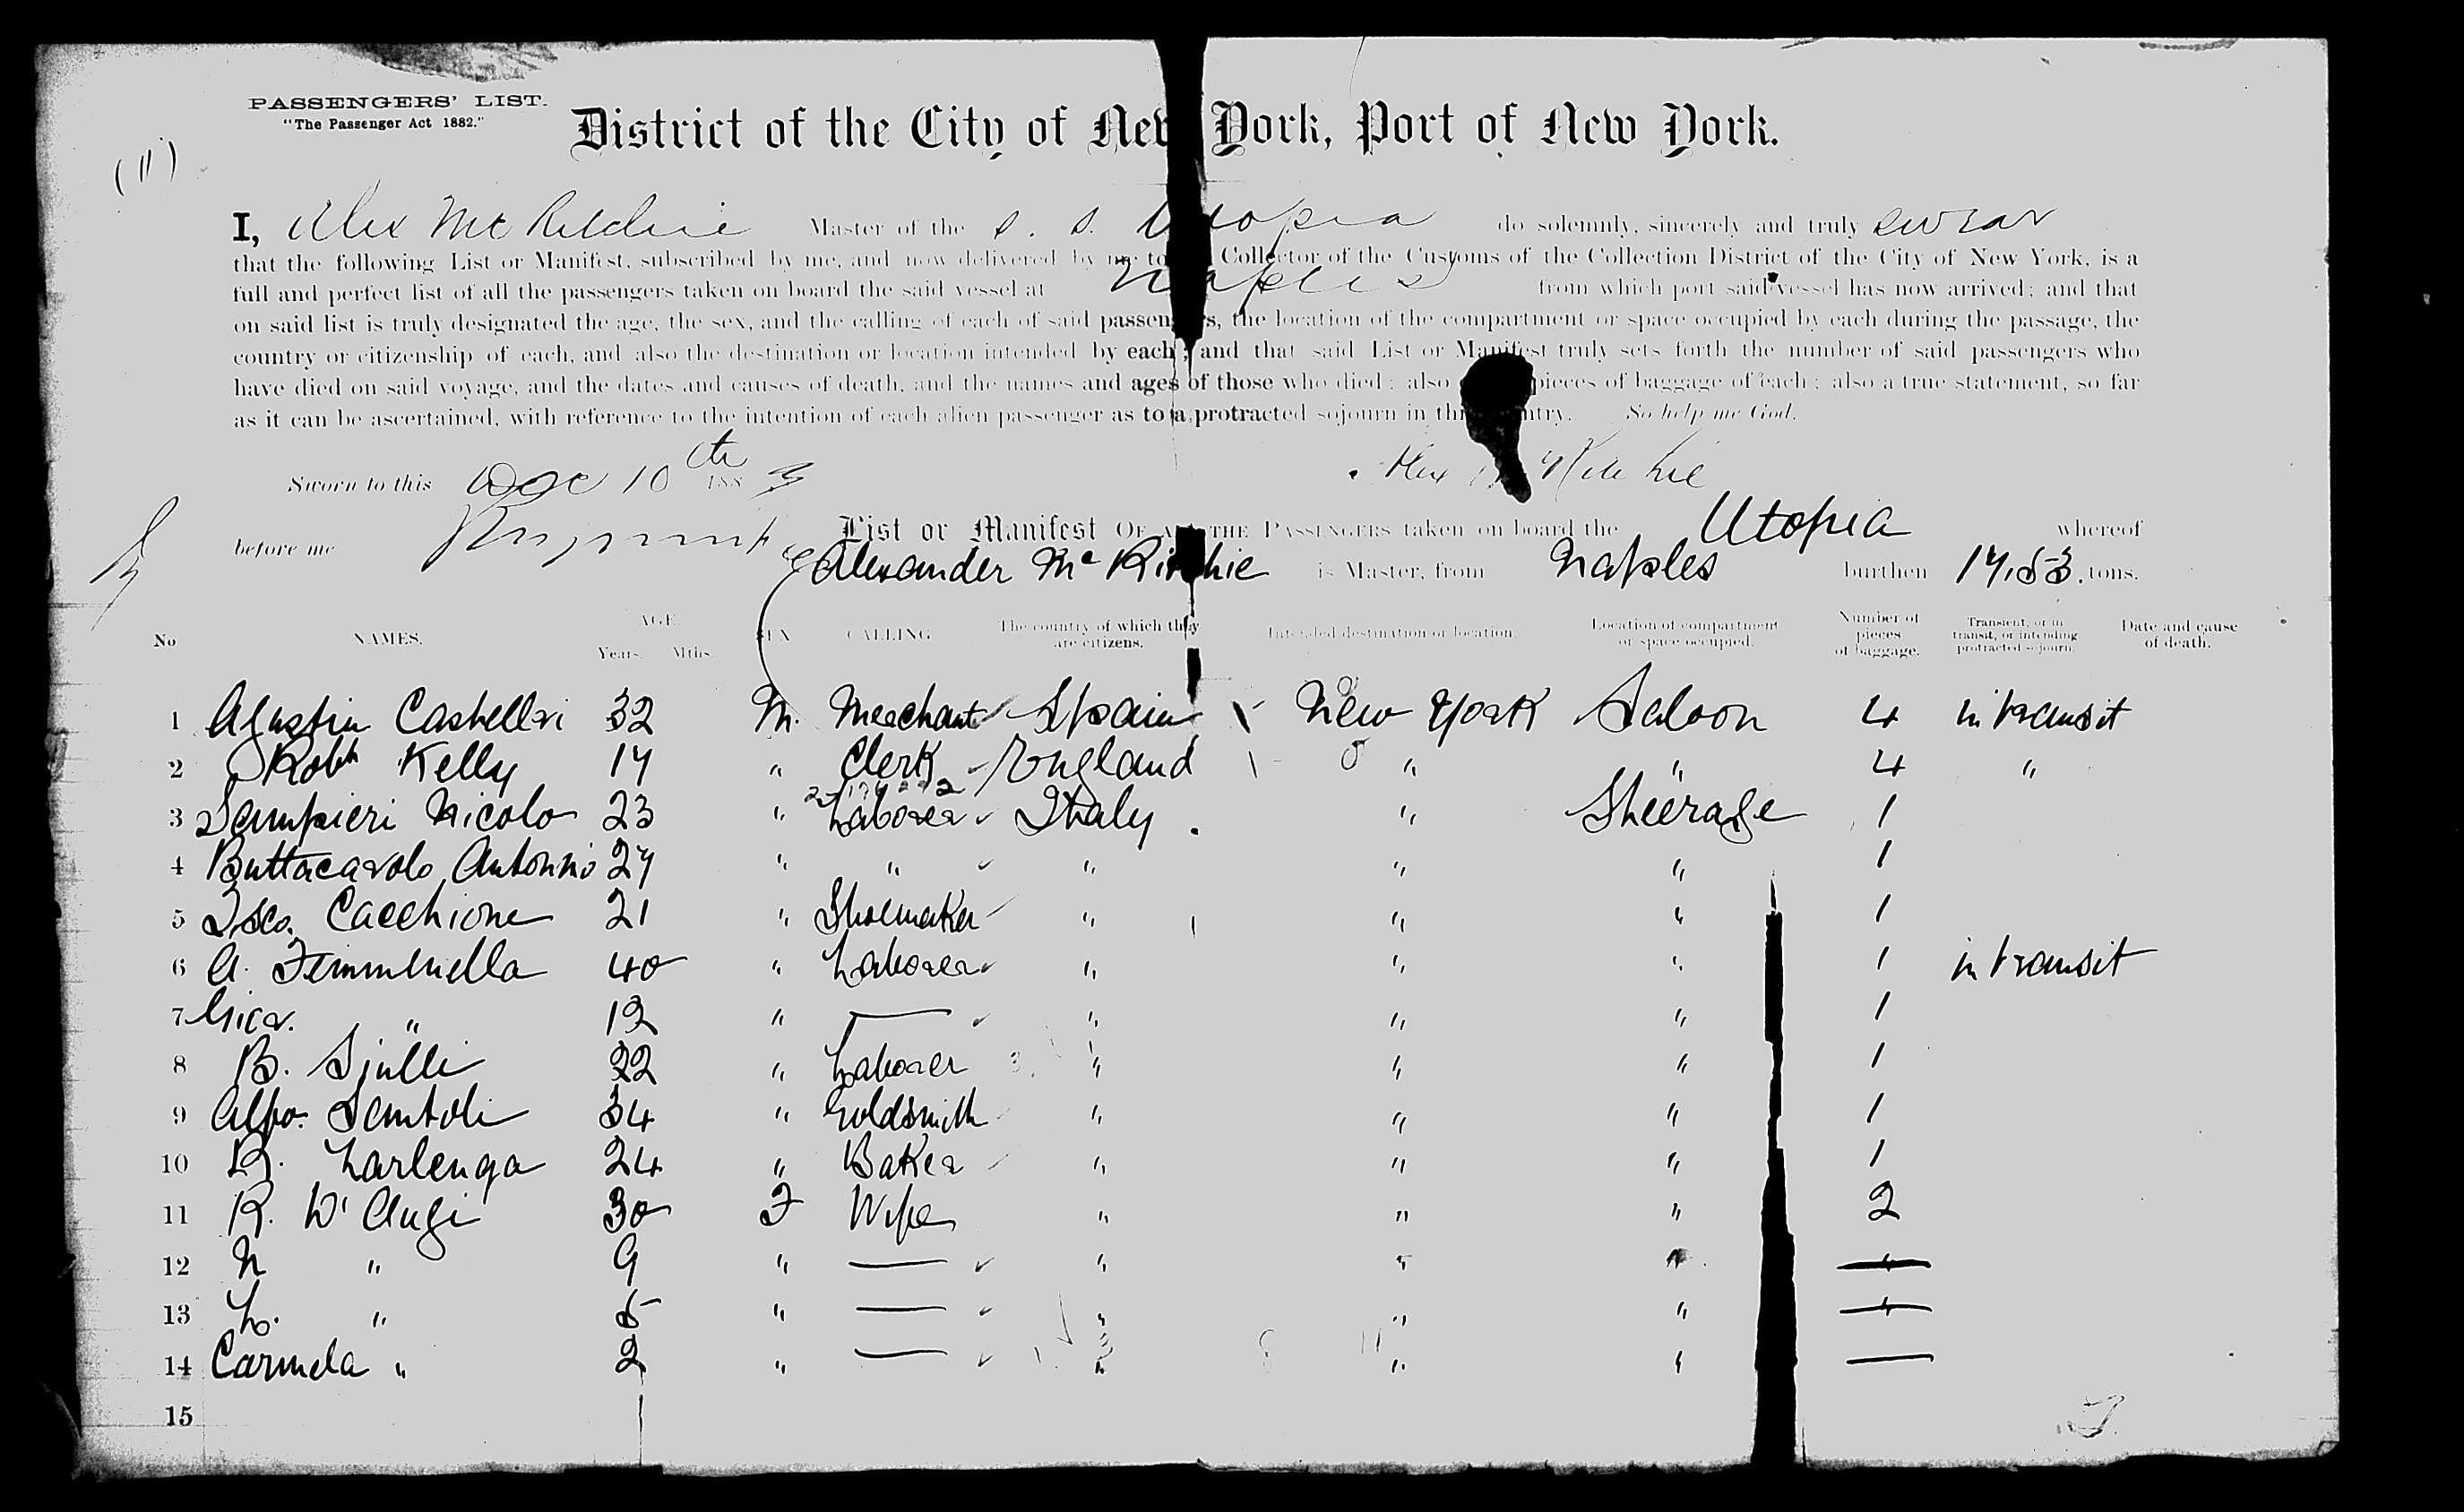 PASSENGERS' LIST.
"The Passenger Act 1882."
District of the City of New York, Port of New York.
(11)
I, Alex McRitchie Master of the s. s. Utopia do solemnly, sincerely and truly swear
that the following List or Manifest, subscribed by me, and now delivered by me to Collector of the Customs of the Collection District of the City of New York, is a
full and perfect list of all the passengers taken on board the said vessel at Naples from which port said vessel has now arrived; and that
on said list is truly designated the age, the sex, and the calling of each of said passengers, the location of the compartment or space occupied by each during the passage, the
country or citizenship of each, and also the destination or location intended by each; and that said List or Manifest truly sets forth the number of said passengers who
have died on said voyage, and the dates and causes of death, and the names and ages of those who died; also pieces of baggage of each; also a true statement, so far
as it can be ascertained, with reference to the intention of each alien passenger as to a protracted sojourn in this country. So help me God.
Sworn to this Dec 10th 1883 Alex McRitchie
before me
List or Manifest OF ALL THE PASSENGERS taken on board the Utopia whereof
Alexander Mc Ritchie is Master, from Naples burthen 17.53. tons.
No NAMES. AGE. Years. Mths. SEX CALLING The country of which they are citizens. Intended destination or location Location of compartment or space occupied. Number of pieces of baggage. Transient, or in transit, or intending protracted sojourn. Date and cause of death.
1 Agustin Castellvi 32 M. Merchant Spain New York Saloon 4 in transit
2 Robt Kelly 17 " Clerk England " " 4 "
3 Sampieri Nicolo 23 " Laborer Italy. " Steerage 1
4 Buttacavolo Antonino 27 " " " " " 1
5 Fsco. Cacchione 21 " Shoemaker " " " 1
6 A. Femminella 40 " Laborer " " " 1 in transit
7 Gica. " 12 " — " " " 1
8 B. Sjulli 22 " Laborer " " " 1
9 Alfo. Santoli 34 " Goldsmith " " " 1
10 B. Larlenga 24 " Baker " " " 1
11 R. D'Angi 30 F Wife " " " 2
12 N " 9 " — " " " —
13 L. " 5 " — " " " —
14 Carmela " 2 " — " " " —
15